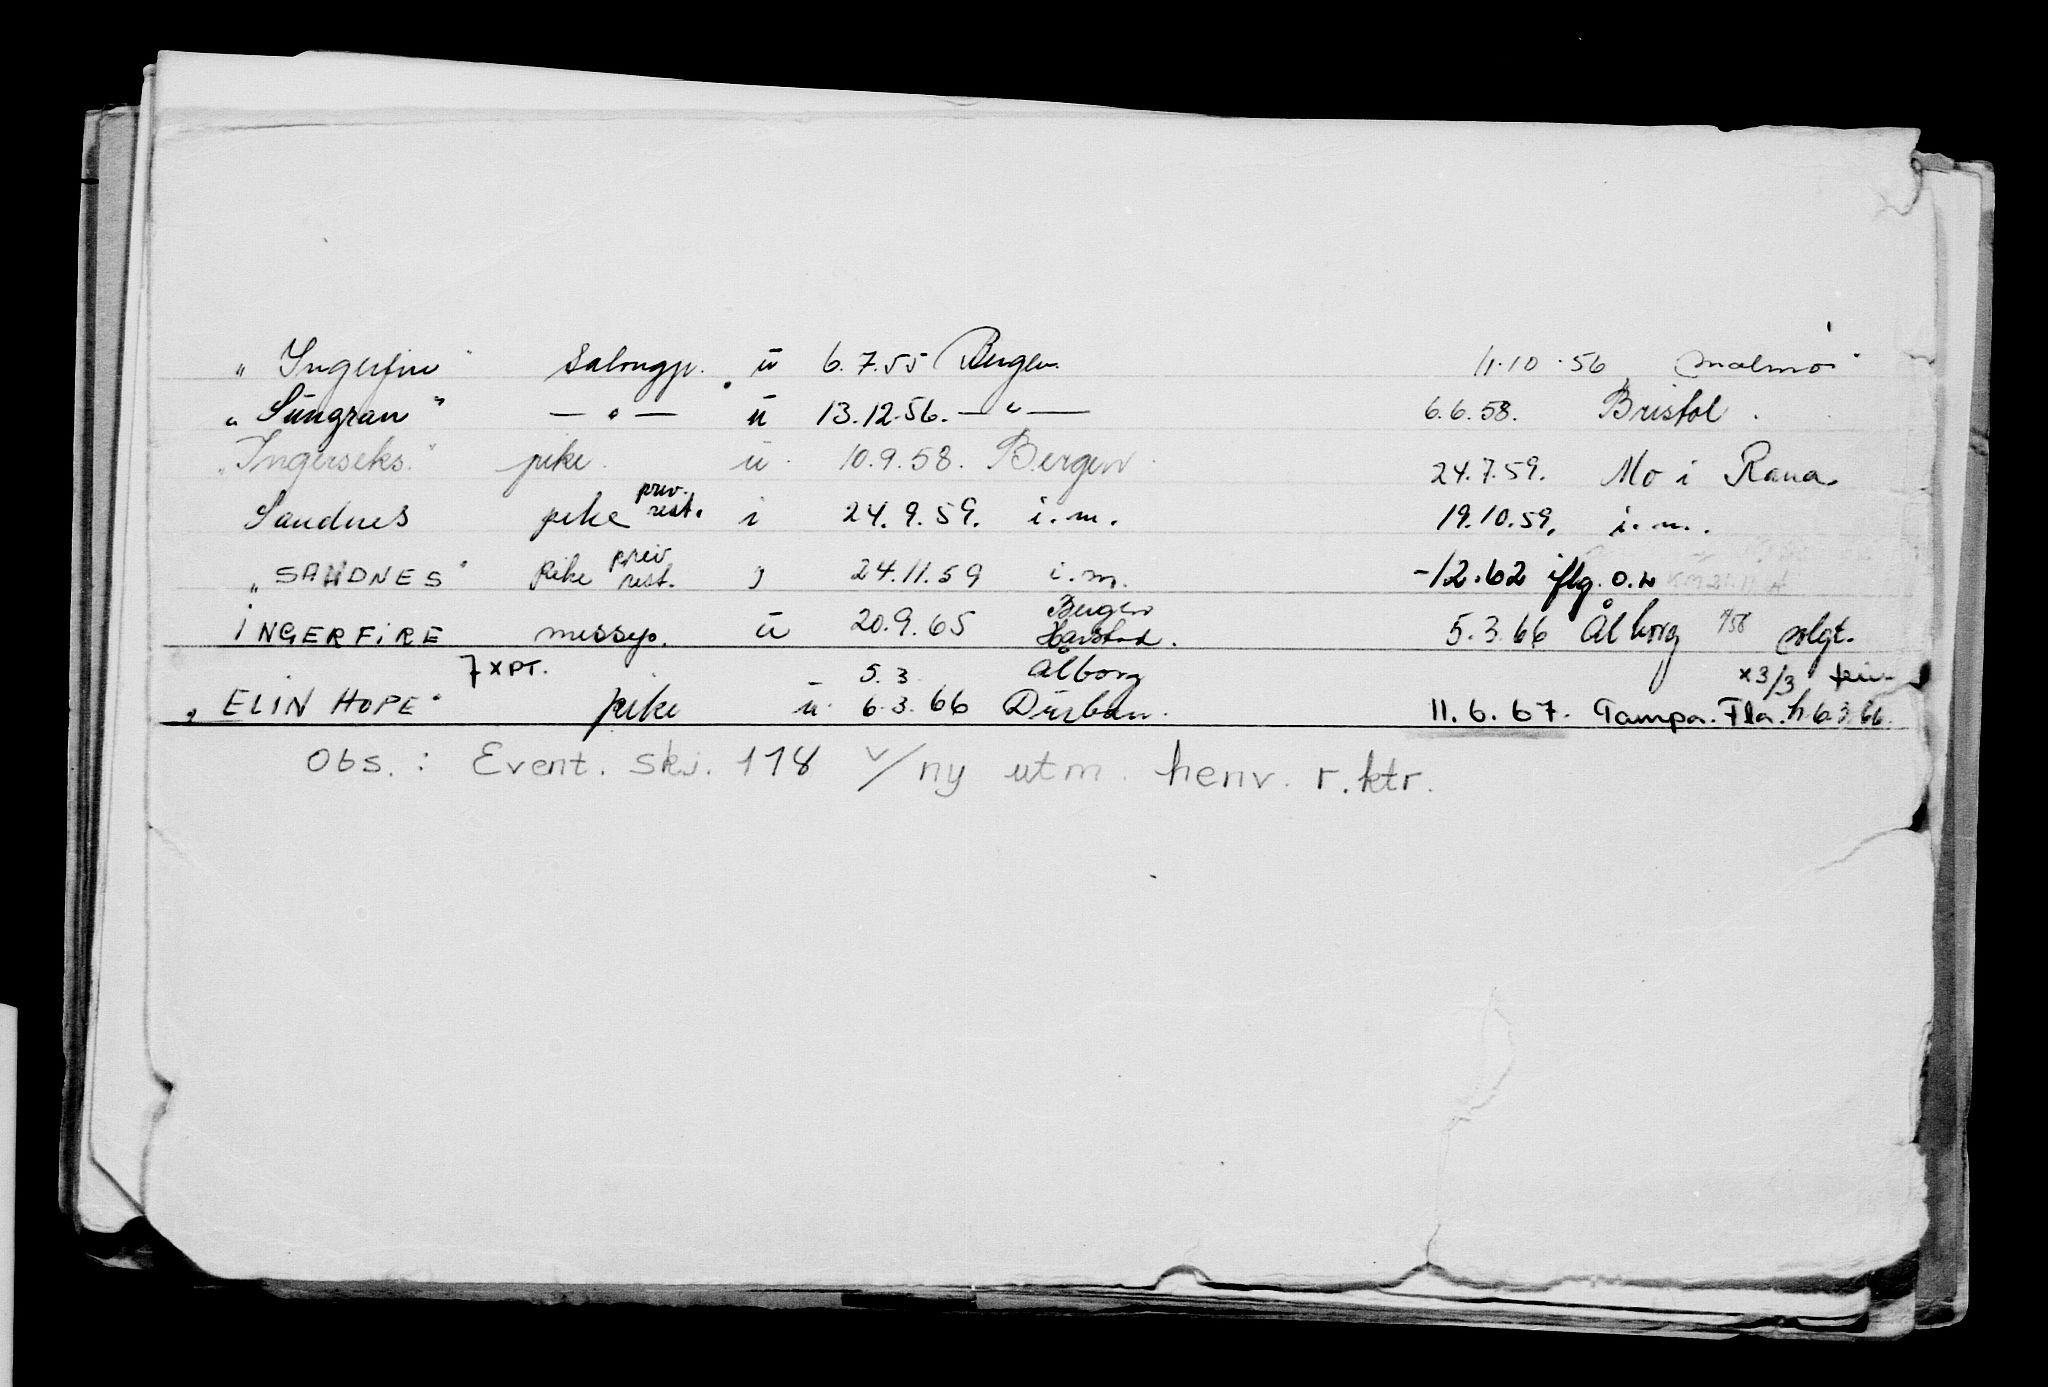 „ Ingerfin " Salongp. ü 6.7.55 Bergen. 11.10.56 Malmö.
„ Sungran " — " — ü 13.12.56. — " — 6.6.58. Bristol.
„ Ingerseks." pike. u. 10.9.58. Bergen. 24.7.59. Mo i Rana.
Sandnes pike priv. rest. i 24.9.59. i.m. 19.10.59. i.m.
„ SANDNES " pike priv rest. i 24.11.59 i.m. -12.62 iflg. o.
INGERFIRE messep. ü 20.9.65 Bergen Harstad. 5.3.66 Ålborg solgt.
7 x PT. 5.3 Ålborg x3/3
„ ELIN HOPE " pike u. 6.3.66 Durban. 11.6.67. Tampa. Fla. h 6.3.66.
Obs. : Event. skj. 118 v/ny utm. henv. r.ktr.